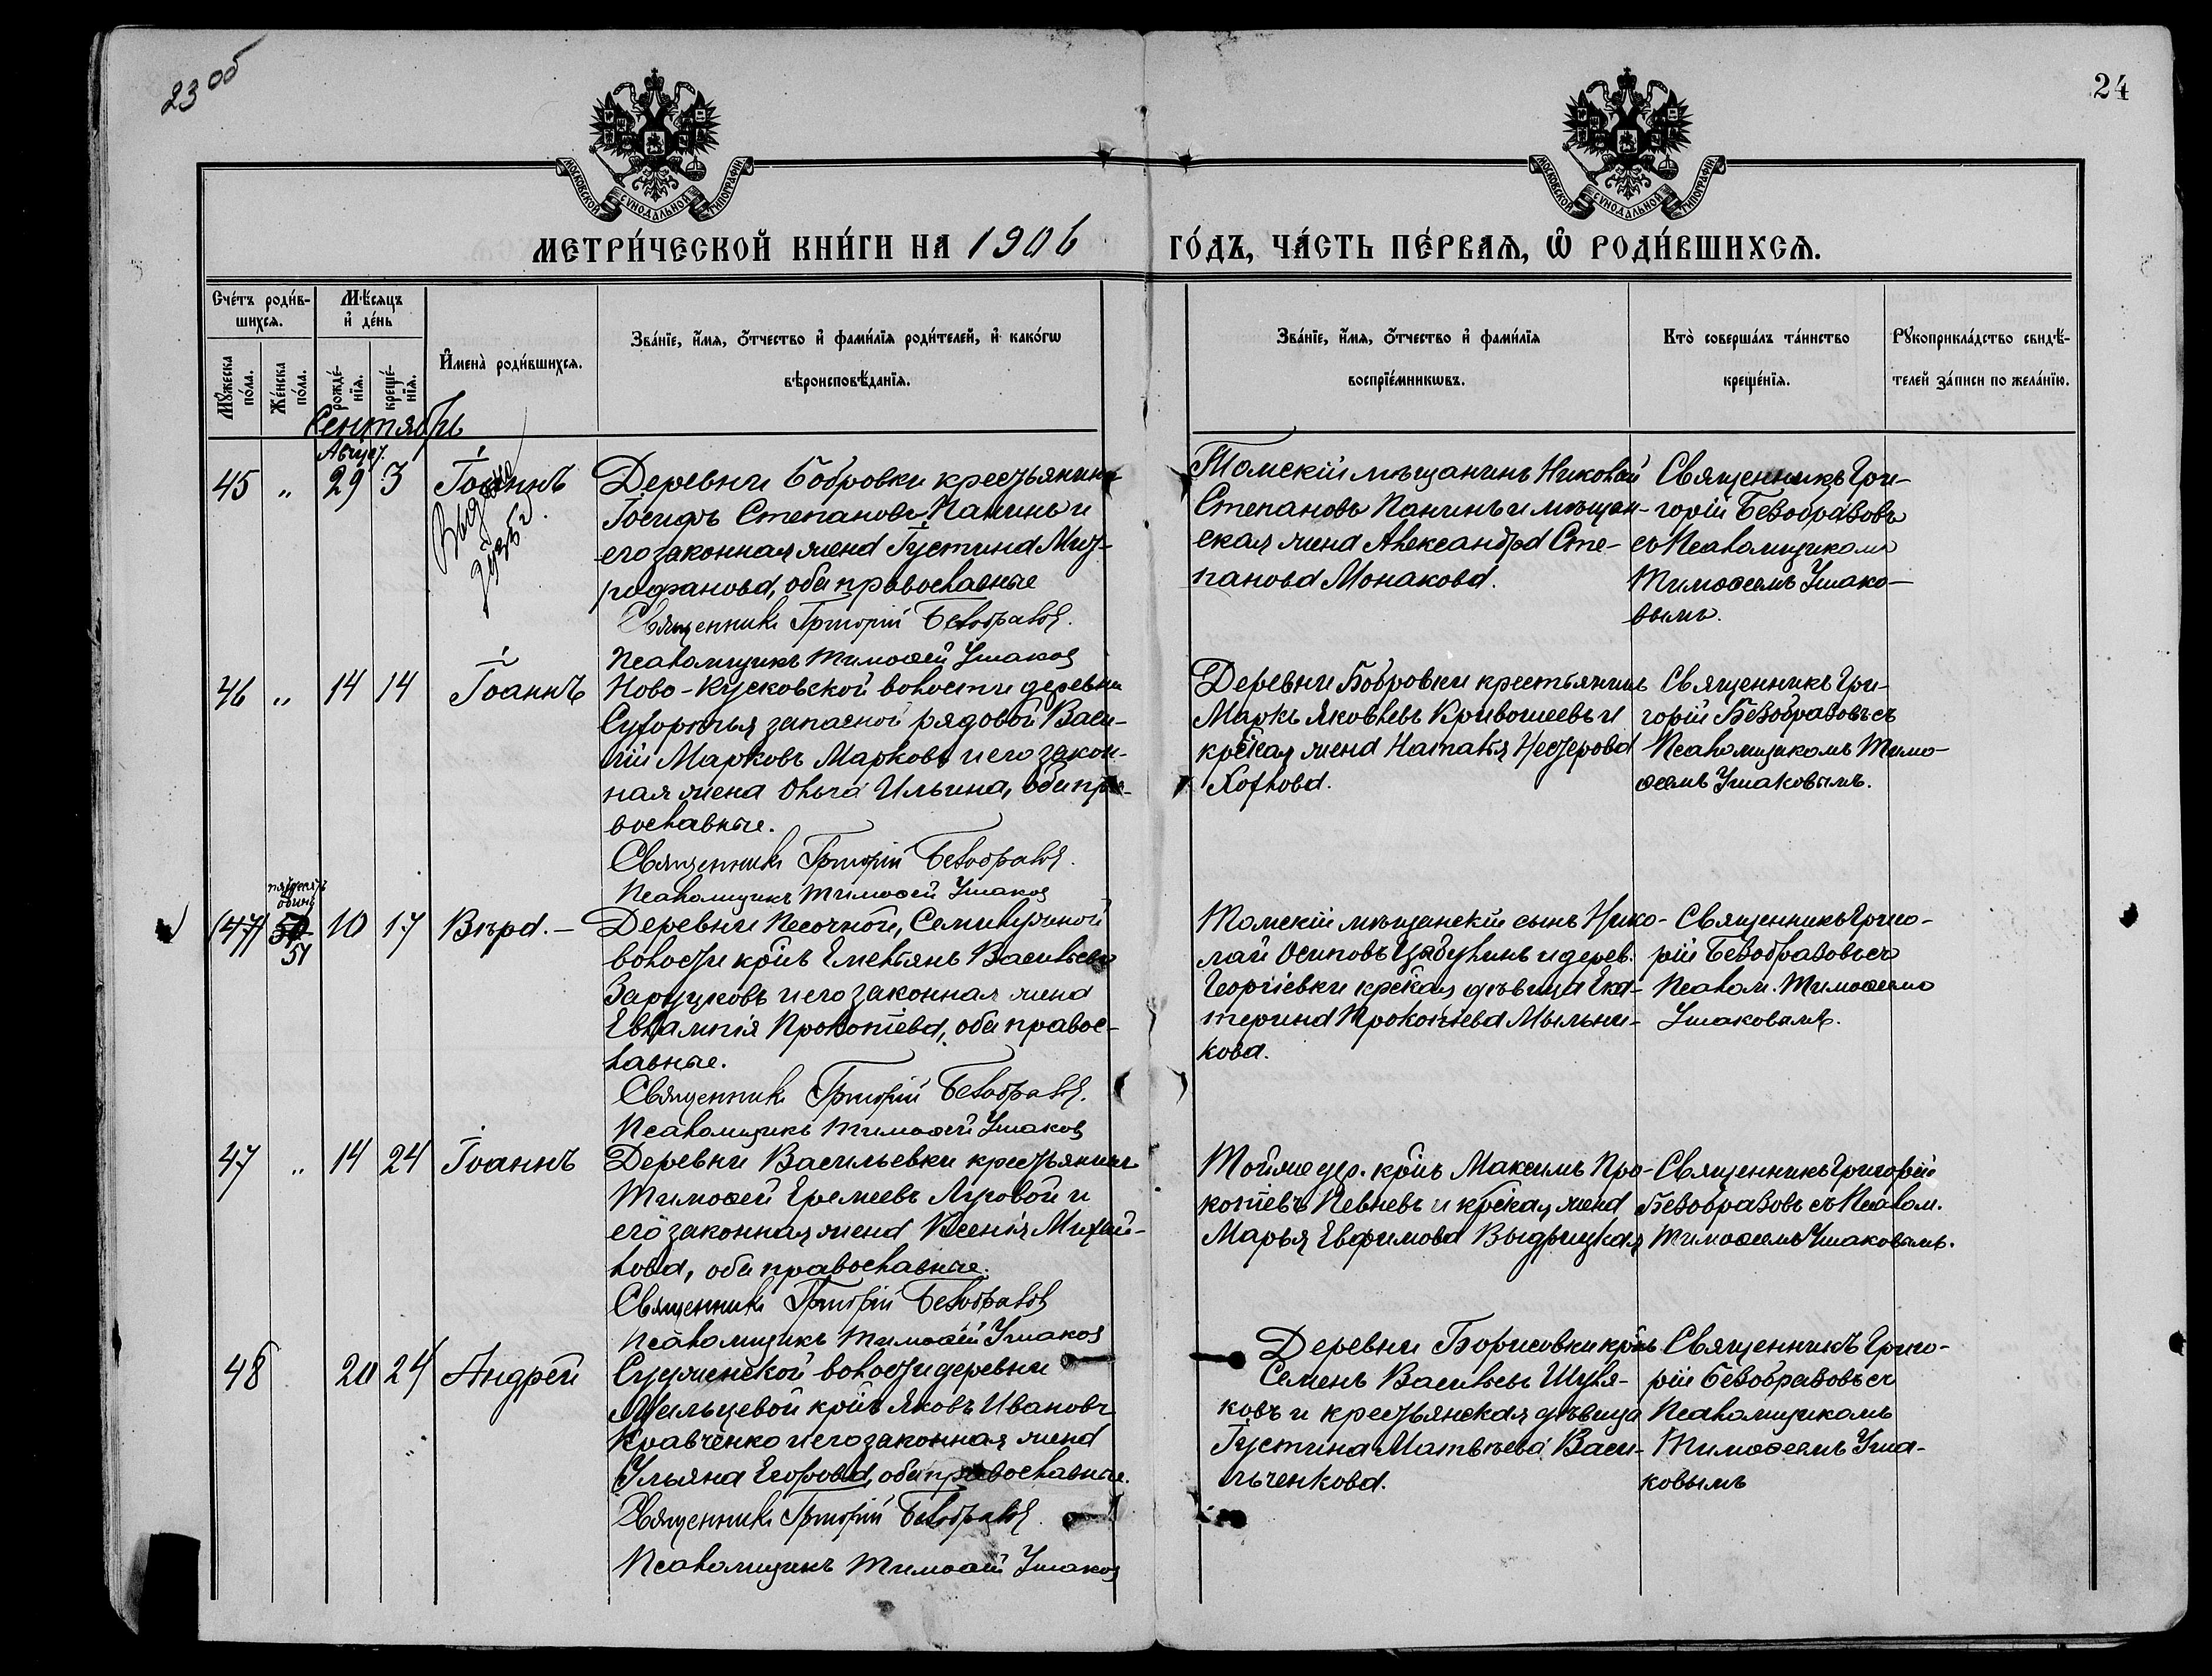 23 об
24
МОСКОВСКОЙ СѴНОДАЛЬНОЙ ТИПОГРАФІИ
МОСКОВСКОЙ СѴНОДАЛЬНОЙ ТИПОГРАФІИ
МЕТРИ́ЧЕСКОЙ КНИ́ГИ НА 1906
ГО́ДЪ, ЧА́СТЬ ПЕ́РВАѦ, Ѡ РОДИ́ВШИХСѦ.
Сче́тъ роди́в-
шихсѧ.
Мѣ́сѧцъ
и҆ де́нь
Мꙋ́жеска
по́ла.
Же́нска
по́ла.
рожде́-
нїѧ.
креще́-
нїѧ.
И҆мена̀ роди́вшихсѧ.
Зва́нїе, и҆́мѧ, ѻ҆́тчество и҆ фами́лїѧ роди́телей, и҆ како́гѡ
вѣроисповѣ́данїѧ.
Зва́нїе, и҆́мѧ, ѻ҆́тчество и҆ фами́лїѧ
воспрїе́мникѡвъ.
Кто̀ соверша́лъ та́инство
креще́нїѧ.
Рꙋкоприкла́дство свидѣ́-
телей за́писи по жела́нїю.
Сентябрь
Август.
45 " 29 3 Іоаннъ
Деревни Бобровки крестьянинъ
Іосифъ Степановъ Панинъ и
его законная жена Іустина Мит-
рофанова, оба православные
Священникъ Григорій Безобразовъ.
Псаломщикъ Тимоѳей Ушаковъ
Томскій мѣщанинъ Николай
Степановъ Панинъ и мѣщан-
ская жена Александра Сте-
панова Монакова.
Священникъ Гри-
горій Безобразовъ
съ Псаломщикомъ
Тимоѳеемъ Ушако-
вымъ.
46 " 14 14 Іоаннъ
Ново-Кусковской волости деревни
Сухорѣчья запасной рядовой Васи-
лій Марковъ Марковъ и его закон-
ная жена Ольга Ильина, оба пра-
вославные.
Священникъ Григорій Безобразовъ.
Псаломщикъ Тимоѳей Ушаковъ
Деревни Бобровки крестьянинъ
Маркъ Яковлевъ Кривошеевъ и
крская жена Наталья Нестерова
Священникъ Гри-
горій Безобразовъ съ
Псаломщикомъ Тимо-
ѳеемъ Ушаковымъ.
(47) 50 51 10 17 Вѣра.
пятдесятъ
одинъ
Деревни Песочной, Семилужной
волости кр-нъ Емельянъ Васильевъ
его законная жена
Евлампія Прокопіева, оба правос-
лавные.
Священникъ Григорій Безобразовъ.
Псаломщикъ Тимоѳей Ушаковъ
Томскій мѣщанскій сынъ Нико-
лай Осиповъ Цибулинъ и дерев.
Георгіевки крская дѣвица Ека-
терина Прокопьева Мыльни-
кова.
Священникъ Григо-
рій Безобразовъ съ
Псалом. Тимоѳеемъ
Ушаковымъ.
47 " 14 24 Іоаннъ
Деревни Васильевки крестьянинъ
Тимоѳей Еремеевъ Луговой и
его законная жена Ксенія Михай-
лова, оба православные.
Священникъ Григорій Безобразовъ
Псаломщикъ Тимоѳей Ушаковъ
Той же дер. кр-нъ Максимъ Про-
копіевъ Певневъ и крская жена
Марья Евфимова Выдрицкая
Священникъ Григорій
Безобразовъ съ Псалом.
Тимоѳеемъ Ушаковымъ.
48 20 24 Андрей
волости деревни
кр-нъ Яковъ Ивановъ
Кравченко и его законная жена
Ульяна Егорова, оба православные.
Священникъ Григорій Безобразовъ.
Псаломщикъ Тимоѳей Ушаковъ
Деревни Борисовки кр-нъ
Семенъ Васильевъ Шуля-
ковъ и крестьянская дѣвица
Іустина Матвѣева Васи-
льченкова.
Священникъ Григо-
рій Безобразовъ съ
Псаломщикомъ
Тимоѳеемъ Уша-
ковымъ